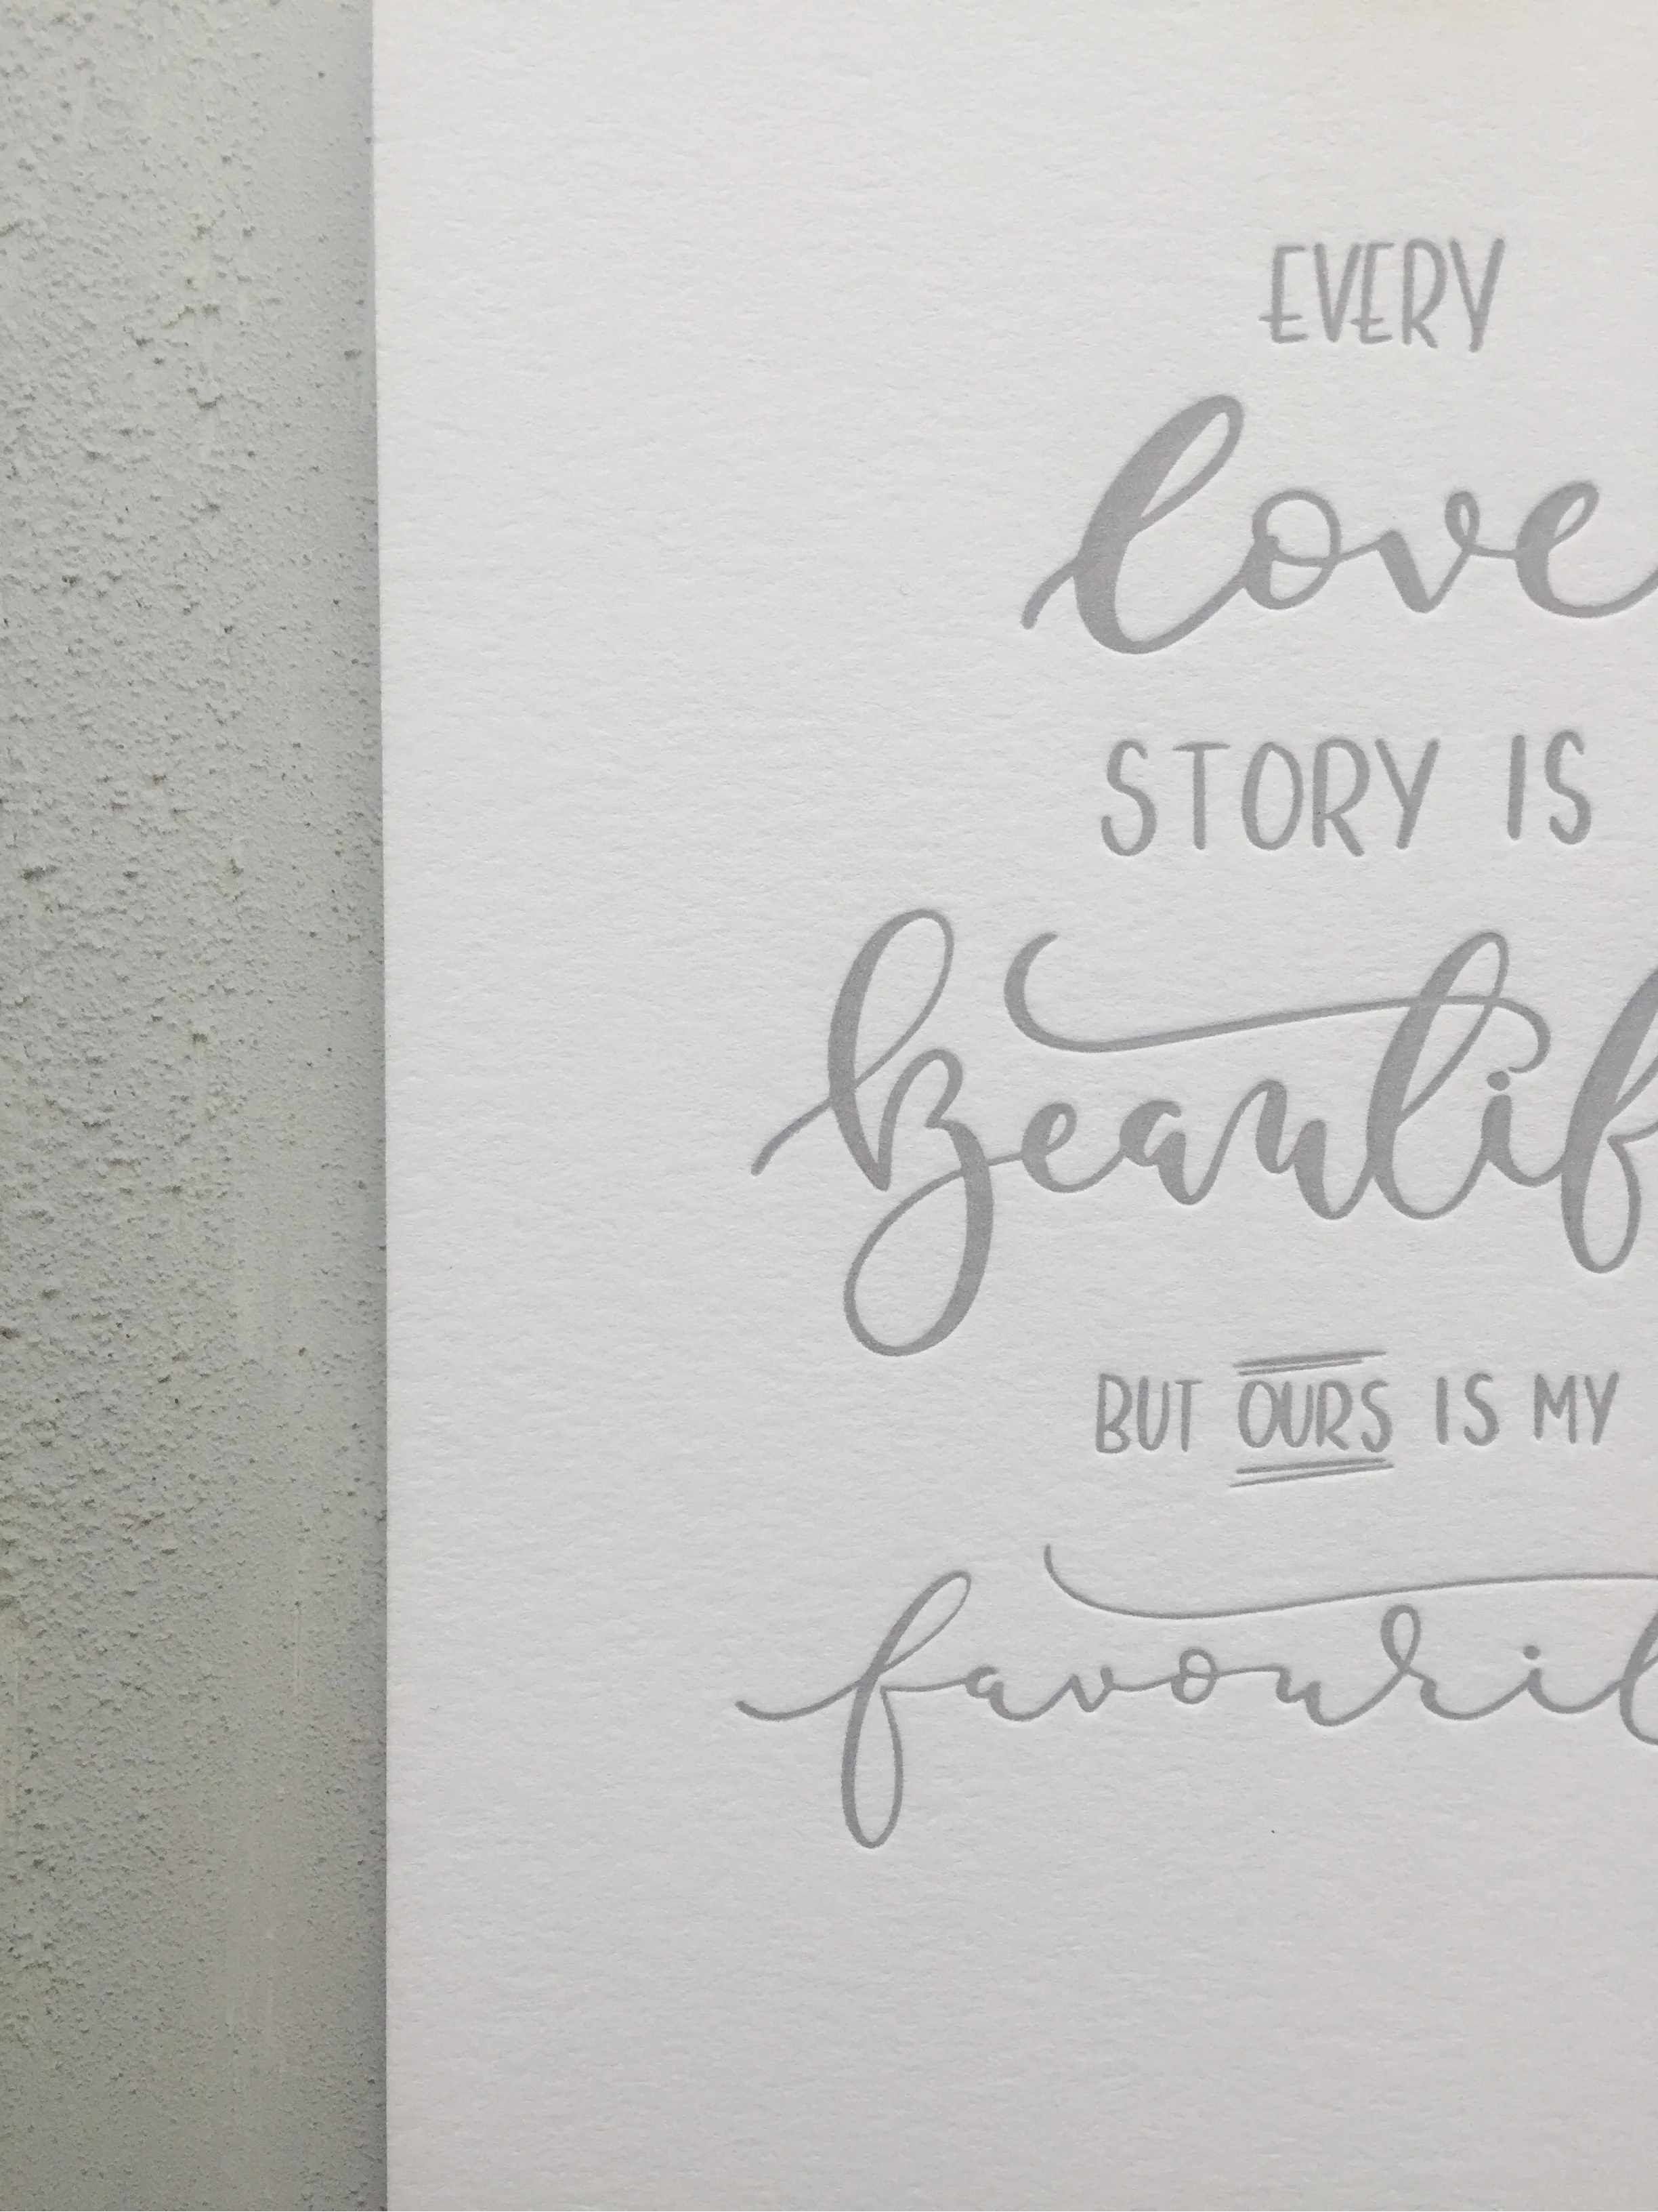 EVERY
love
STORY IS
Beautif
BUT OURS IS MY
favourit